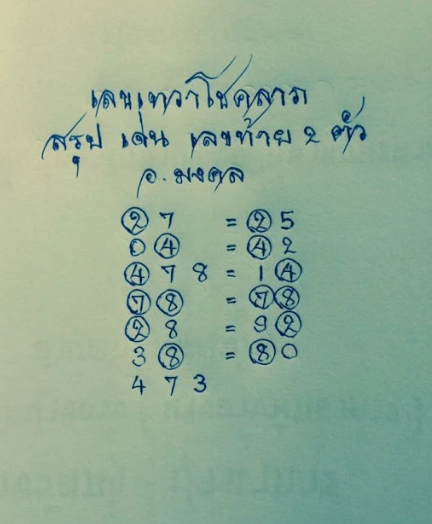 เลขเทวาโชคลาภ
สรุป เด่น เลขท้าย 2 ตัว
อ. มงคล
2 7 = 2 5
0 4 = 4 2
4 7 8 = 1 4
7 8 = 7 8
2 8 = 9 2
3 8 = 8 0
4 7 3